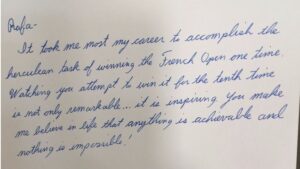 Rafa-
It took me most my career to accomplish the
herculean task of winning the French Open one time.
Watching you attempt to win it for the tenth time
is not only remarkable... it is inspiring. You make
me believe in life that anything is achievable and
nothing is impossible!